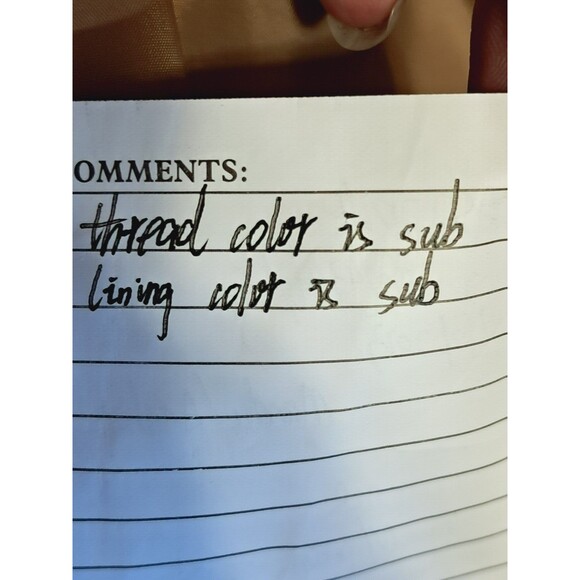 OMMENTS:
thread color is sub
lining color is sub